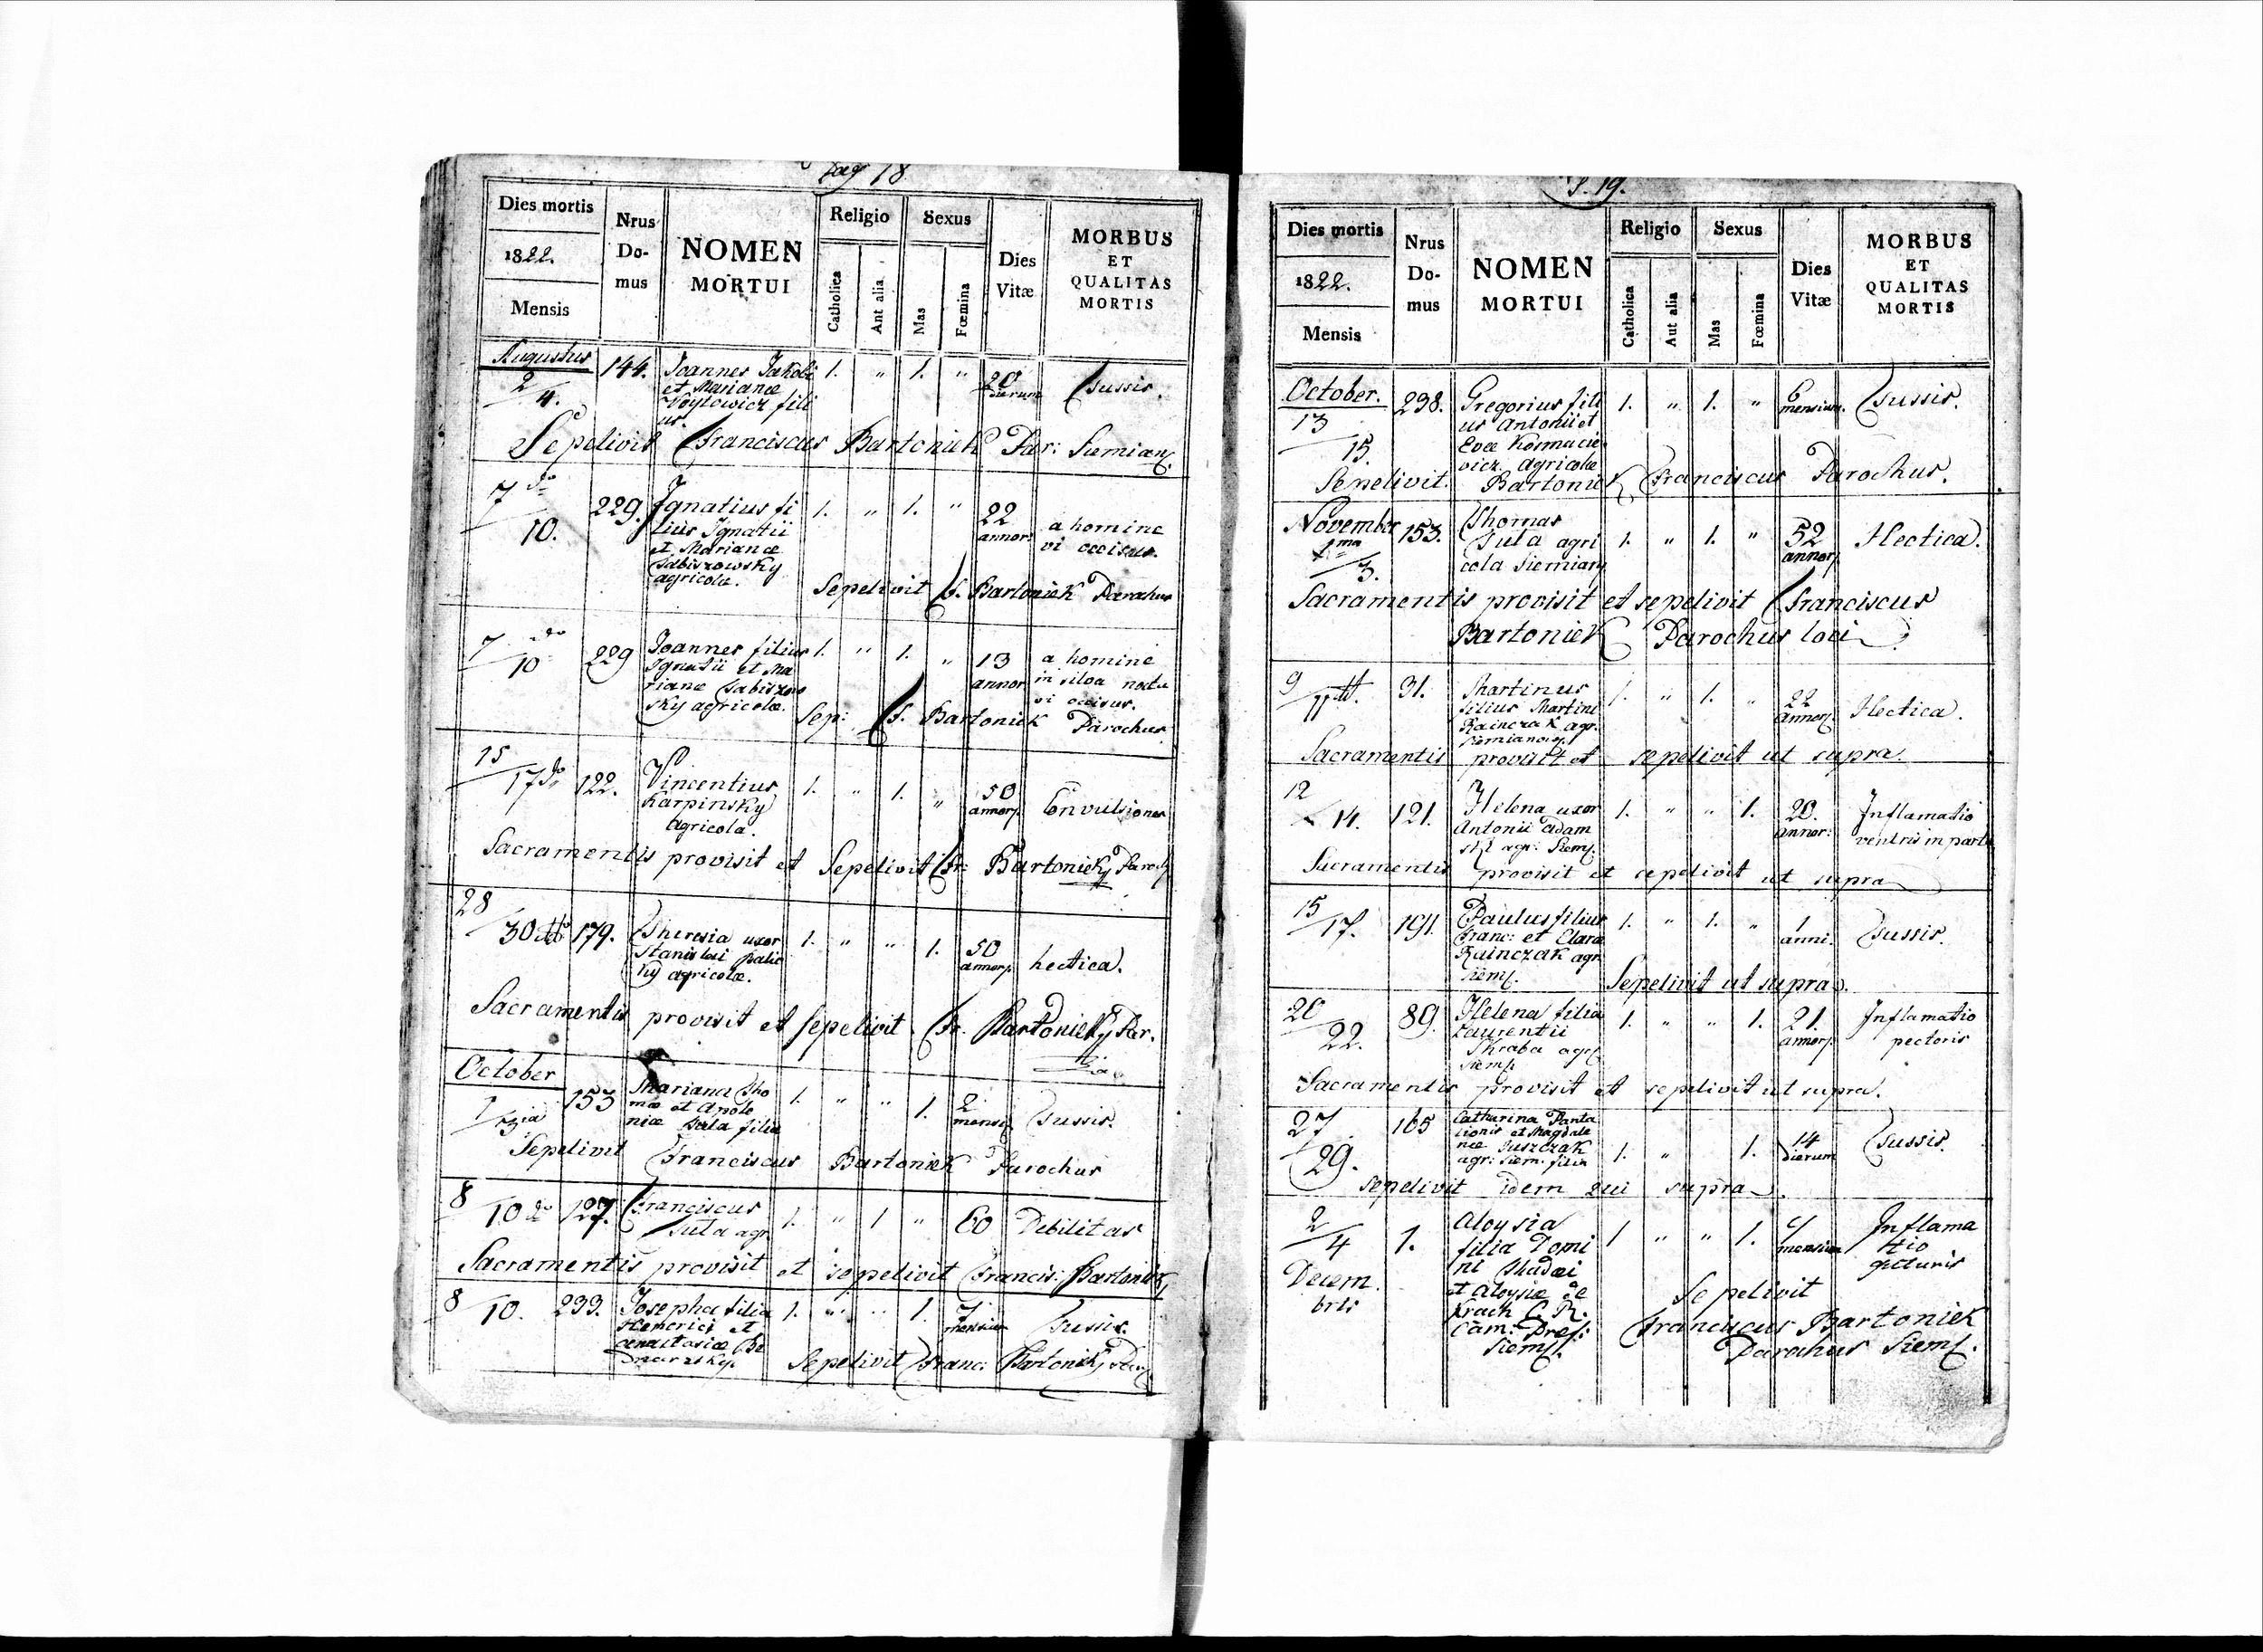 Pag 18
Dies mortis
1822.
Mensis
Nrus
Do-
mus
NOMEN
MORTUI
Religio
Catholica
Aut alia
Sexus
Mas
Fœmina
Dies
Vitæ
MORBUS
ET
QUALITAS
MORTIS
Augustus
2/4. 144. Joannes Jakobi 1. " 1. " 20 Tussis.
et Marianæ dierum
Woytowicz fili
us.
Sepelivit Franciscus Bartoniek Par: Siemian.
7 do/10. 229. Ignatius fi 1. " 1. " 22 a homine
lius Ignatii annor: vi occisus.
et Marianæ
Sabiszowsky
agricolæ.
Sepelivit F. Bartoniek Parochus
7/10 do 229 Joannes filius 1. " 1. " 13 a homine
Ignatii et Ma annor in silva noctu
rianæ Sabiszow vi occisus.
sky agricolæ.
Sep: F. Bartoniek Parochus
15/17 do 122. Vincentius 1. " 1. " 50 Convulsiones
Karpinsky annor
agricola.
Sacramentis provisit et Sepelivit Fr: Bartoniek Paroch
28/30 179. Theresia uxor 1. " " 1. 50 hectica.
Stanislai Palic annor
ky agricolæ.
Sacramentis provisit et sepelivit Fr. Bartoniek Par.
October
1/3ia 153 Mariana Tho 1. " " 1. 2 Tussis.
mæ et Apolo mensi
niæ Suta filia
Sepelivit Franciscus Bartoniek Parochus
8/10 do 127. Franciscus 1. " 1 " 60 Debilitas
Suta agr
Sacramentis provisit et sepelivit Francis: Bartoniek
8/10. 233. Josepha filia 1. " " 1. 7 Tussis.
et mensium
Sepelivit Franc: Bartoniek
P. 19.
Dies mortis
1822.
Mensis
Nrus
Do-
mus
NOMEN
MORTUI
Religio
Catholica
Aut alia
Sexus
Mas
Fœmina
Dies
Vitæ
MORBUS
ET
QUALITAS
MORTIS
October.
13/15. 298. Gregorius fili 1. " 1. " 6 Tussis.
us Antonii et mensium.
Evæ Kosmacie
vicz. agricolæ
Sepelivit. Bartoniek Franciscus Parochus.
November
1ma/3. 153. Thomas 1. " 1. " 52 Hectica.
Suta agri annor
cola Siemian
Sacramentis provisit et sepelivit Franciscus
Bartoniek Parochus loci
9/11 31. Martinus 1. " 1. " 22 Hectica.
filius Martini annor
Rainczak agr.
Sacramentis provisit et sepelivit ut supra.
12/14. 121. Helena uxor 1. " " 1. 20. Inflamatio
Antonii Adam annor: ventris in partu
ski agr: Siem.
Sacramentis provisit et sepelivit ut supra
15/17. 191. Paulus filius 1. " 1. " 1 Tussis.
Franc: et Claræ anni.
Rainczak agr
Siem.
Sepelivit ut supra.
20/22. 89. Helena filia 1. " " 1. 21. Inflamatio
Laurentii annor pectoris
Skraba agr
Siem.
Sacramentis provisit et sepelivit ut supra.
27/29. 165 Catharina Panta 1. " 1. 14 Tussis.
lionis et Magdale dierum
næ Juszczak
agr: Siem: filia
Sepelivit idem qui supra.
2/4 1. Aloysia 1 " " 1. Inflama
Decem filia Domi mensium tio
bris ni
et Aloysiæ de
C. R.
Cam: Præf:
Siem.
Sepelivit
Franciscus Bartoniek
Parochus Siem.